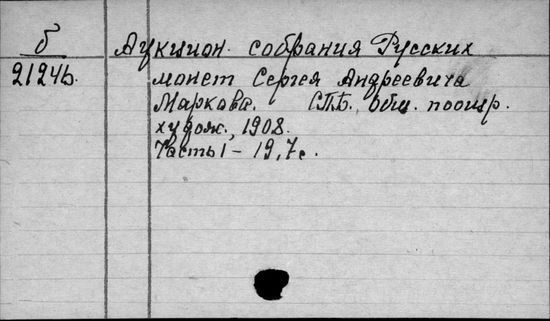 б
2124б.
Аукцион собрания Русских
монет Сергея Андреевича
Маркова. СПБ. Общ. поощр.
худож., 1908.
Часть I - 19,7с.